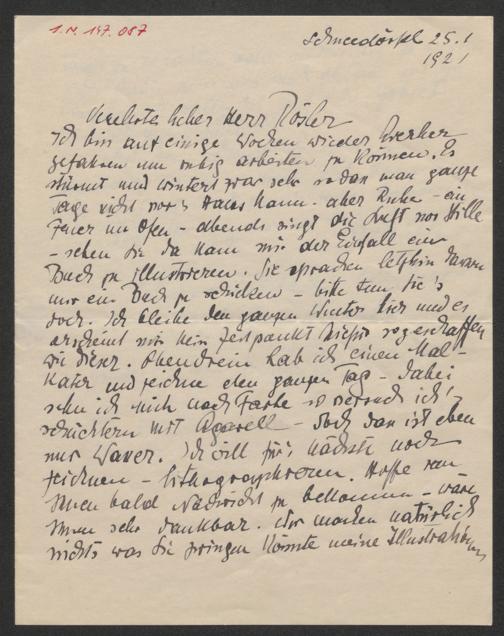 1.N. 197.087
Schneedörfl 25.1
1921
Verehrter lieber Herr Rösler
Ich bin auf einige Wochen wieder hierher
gefahren um ruhig arbeiten zu können. Es
stürmt und wintert zwar sehr so dan man ganze
Tage nicht vor's Haus kann - aber Ruhe - ein
Feuer im Ofen - abends singt die Luft vor Stille
- sehen Sie da kam mir der Einfall ein
Buch zu illustrieren. Sie sprachen letzthin davon
mir ein Buch zu schicken - bitte tun Sie's
doch. Ich bleibe den ganzen Winter hier und es
erscheint mir kein Zeitpunkt so geschaffen
wie dieser. Obendrein hab ich einen Mal-
Kater und zeichne den ganzen Tag - dabei
sehn ich mich nach Farbe so versuch ich's
schüchtern mit Aquarell - doch das ist eben
nur Wasser. Ich will für's nächste noch
zeichnen - lithographieren. Hoffe von
Ihnen bald Nachricht zu bekommen - wäre
Ihnen sehr dankbar. Wir machen natürlich
nichts was Sie zwingen könnte meine Illustrationen